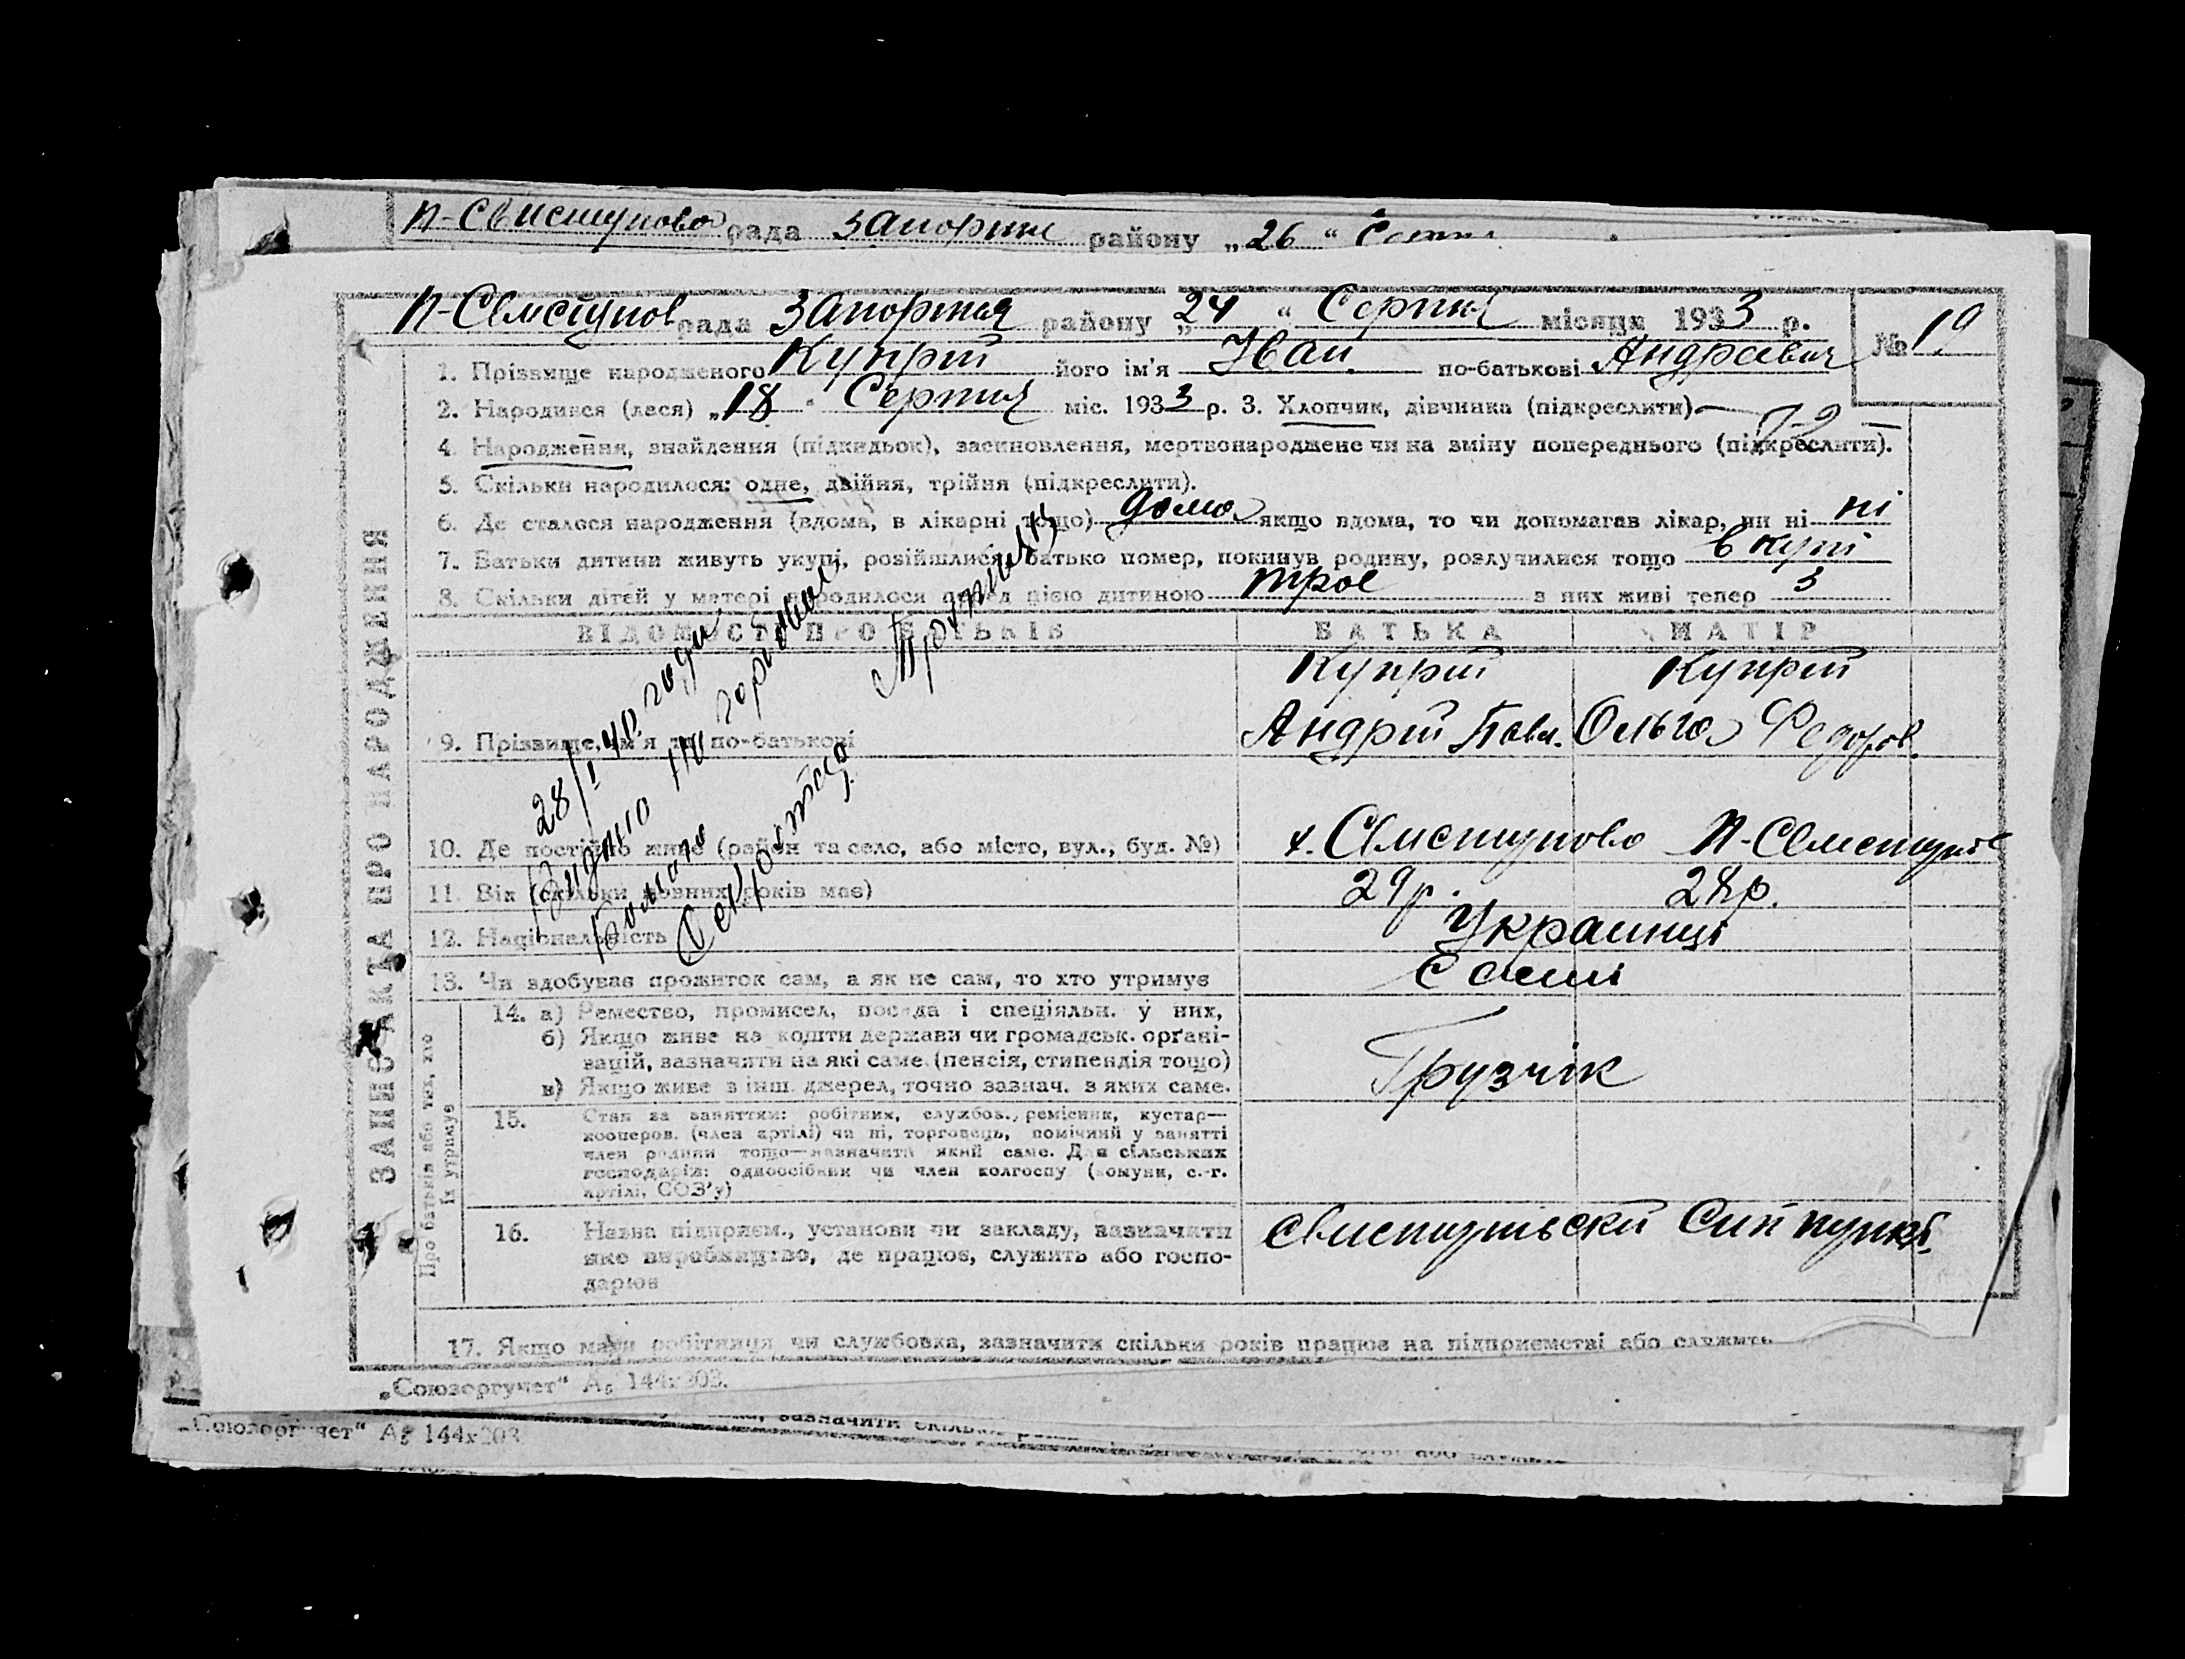 П-Свистуново рада Запоріжжя району „26“
П-Свистунов рада Запоріжжя району „24“ Серпня місяця 1933 р. № 19
1. Прізвище народженого Купрій його ім'я Іван по-батькові Андреевич
2. Народився (лася) „18“ Серпня міс. 1933 р. 3. Хлопчик, дівчинка (підкреслити)
4. Народження, знайдення (підкидьок), засиновлення, мертвонароджене чи на зміну попереднього (підкреслити).
5. Скільки народилося: одне, двійня, трійня (підкреслити).
6. Де сталося народження (вдома, в лікарні тощо) дома якщо вдома, то чи допомагав лікар, чи ні ні
7. Батьки дитини живуть укупі, розійшлися, батько помер, покинув родину, розлучилися тощо вкупі
8. Скільки дітей у матері народилося перед цією дитиною трое з них живі тепер 3
ВІДОМОСТІ ПРО БАТЬКІВ БАТЬКА МАТІР
Купрій Купрій
9. Прізвище, ім'я та по-батькові Андрій Павл. Ольга Федоров.
10. Де постійно живе (район та село, або місто, вул., буд. №) х. Свистуново П-Свистунов
11. Вік (скільки повних років має) 29р. 28р.
12. Національність Украинці
13. Чи здобуває прожиток сам, а як не сам, то хто утримує сами
14. а) Ремество, промисел, посада і спеціяльн. у них,
б) Якщо живе на кошти держави чи громадськ. орґані-
зацій, зазначити на які саме (пенсія, стипендія тощо)
в) Якщо живе з інш. джерел, точно зазнач. з яких саме.
Грузчік
15. Стан за заняттям: робітник, службов., ремісник, кустар—
кооперов. (член артілі) чи ні, торговець, помічний у занятті
член родини тощо—назначити який саме. Для сільських
господарів: одноосібник чи член колгоспу (комуни, с.-г.
артілі, СОЗ'у)
16. Назва підприєм., установи чи закладу, зазначити
яке виробництво, де працює, служить або госпо-
дарює
Свистунівский Сип пункт.
17. Якщо мати робітниця чи службовка, зазначити скільки років працює на підприємстві або служить
„Союзоргучет“ А5 144х203.
„Союзоргучет“ А5 144х203
ЗАПИС АКТА ПРО НАРОДЖЕННЯ
Про батьків або тих, хто
їх утримує
28/I 40 года
Видано